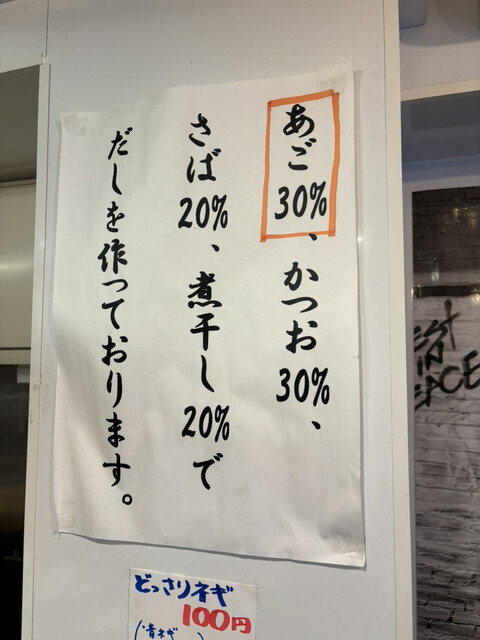 あご30%、かつお30%、
さば20%、煮干し20%で
だしを作っております。
どっさりネギ
100円
(青ネギ
EST
IN